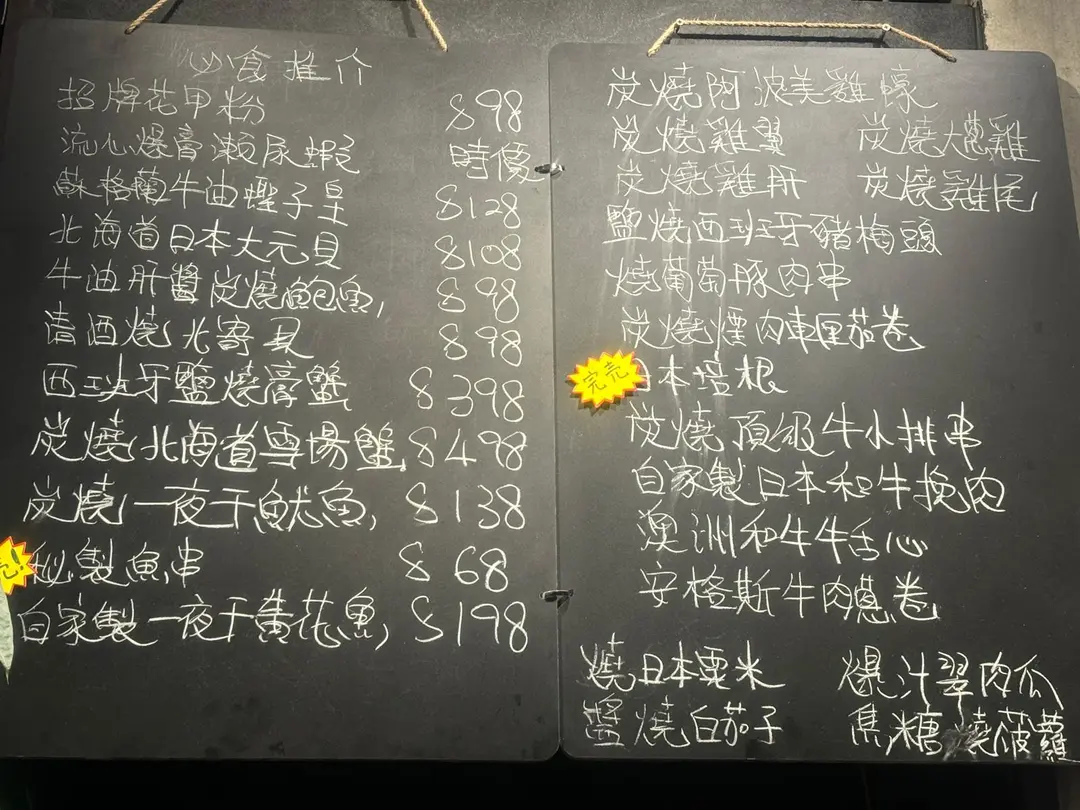 必食推介
招牌花甲粉 $98
流心爆膏瀨尿蝦 時價
蘇格蘭牛油蟶子皇 $128
北海道日本大元貝 $108
牛油肝醬炭燒鮑魚 $98
清酒燒北寄貝 $98
西班牙鹽燒膏蟹 $398
炭燒北海道雪場蟹 $498
炭燒一夜干魷魚 $138
秘製魚串 $68
自家製一夜干黃花魚 $198
炭燒阿波美雞蠔
炭燒雞翼 炭燒大蔥雞
炭燒雞肝 炭燒雞尾
鹽燒西班牙豬梅頭
燒葡萄豚肉串
炭燒煙肉車厘茄卷
完売
日本培根
炭燒頂級牛小排串
自家製日本和牛挽肉
澳洲和牛牛舌心
安格斯牛肉蔥卷
燒日本粟米 爆汁翠肉瓜
醬燒白茄子 焦糖燒菠蘿